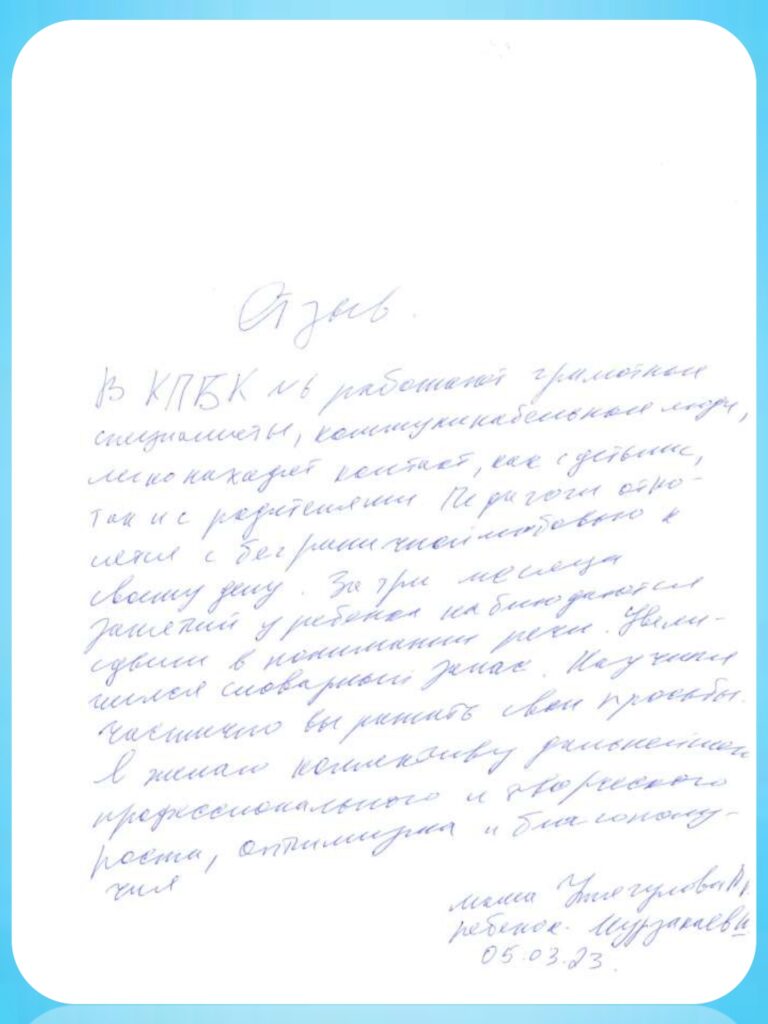 Отзыв.
В КПБК №6 работают грамотные
специалисты, коммуникабельные люди,
легко находят контакт, как с детьми,
так и с родителями Педагоги отно-
сятся с безграничной любовью к
своему делу. За три месяца
занятий у ребенка наблюдаются
сдвиги в понимании речи. Увели-
чился словарный запас. Научился
частично выражать свои просьбы.
Я желаю коллективу дальнейшего
профессионального и творческого
роста, оптимизма и благополу-
чия
мама
ребенок. Мурзакаев
05.03.23.